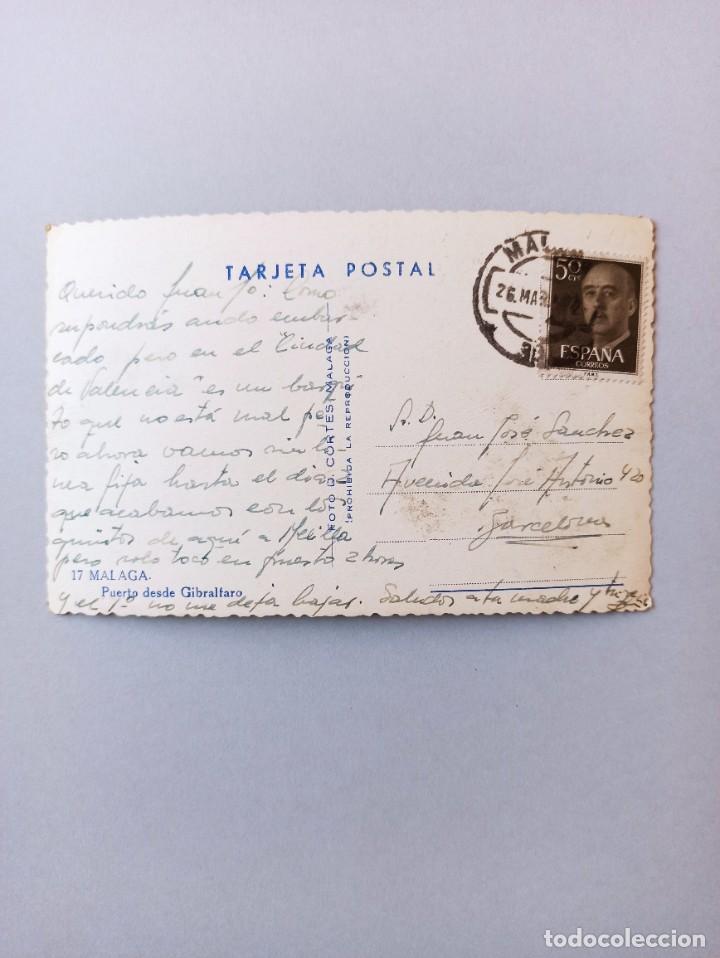 TARJETA POSTAL
Querido Juan Jo: Como
supondrás ando embar-
cado pero en el "Ciudad
de Valencia" es un barqui
to que no está mal pe
ro ahora vamos sin lí
nea fija hasta el dia
que acabamos con los
quintos de aquí a Melilla
pero solo toco en puesto 2 horas
y el 1º no me deja bajar. Saludos a tu madre y
17 MALAGA.
Puerto desde Gibralfaro
FOTO D. CORTES. MALAGA
(PROHIBIDA LA REPRODUCCION)
MAL
26. MAR
50
CTS
ESPAÑA
CORREOS
Sr. D.
Juan José Sanchez
Avenida José Antonio 420
Barcelona
todocoleccion
todocoleccion.net